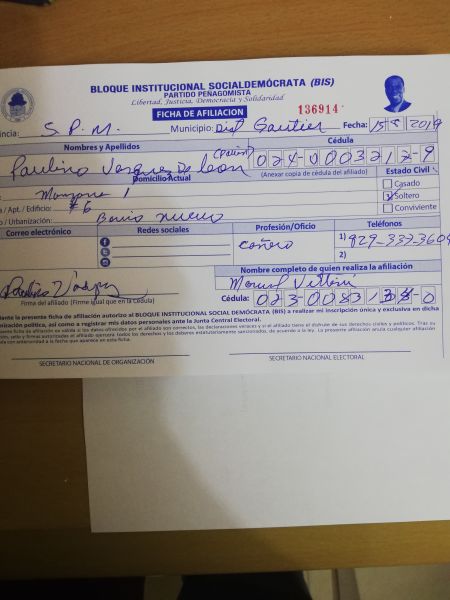 BLOQUE INSTITUCIONAL SOCIALDEMÓCRATA (BIS)
PARTIDO PEÑAGOMISTA
Libertad, Justicia, Democracia y Solidaridad
FICHA DE AFILIACION 136914
incia: S.P.M. Municipio: Dist Gautier Fecha: 15 8 2019
Nombres y Apellidos Cédula
Paulino Vasquez De leon 024-0003217-9
Domicilio Actual (Anexar copia de cédula del afiliado) Estado Civil
Manzana 1 Casado
/ Apt. / Edificio: #6 Soltero
/ Urbanización: Barrio nuevo Conviviente
Correo electrónico Redes sociales Profesión/Oficio Teléfonos
cañero 1) 929-333-3609
2)
Nombre completo de quien realiza la afiliación
Manuel
Firma del afiliado (Firme igual que en la Cédula) Cédula: 023-0083
ante la presente ficha de afiliación autorizo al BLOQUE INSTITUCIONAL SOCIAL DEMÓCRATA (BIS) a realizar mi inscripción única y exclusiva en dicha
nización política, así como a registrar mis datos personales ante la Junta Central Electoral.
SECRETARIO NACIONAL DE ORGANIZACIÓN SECRETARIO NACIONAL ELECTORAL